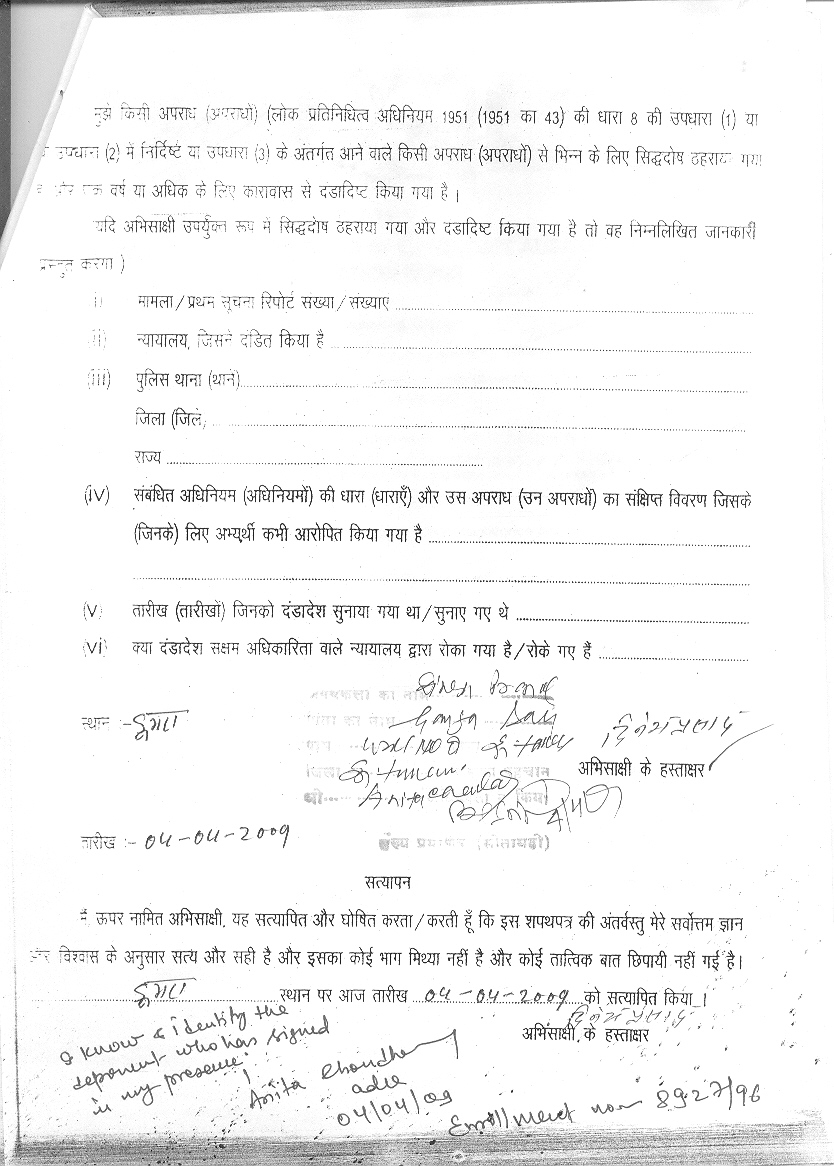 मुझे किसी अपराध (अपराधों) (लोक प्रतिनिधित्व अधिनियम 1951 (1951 का 43) की धारा 8 की उपधारा (1) या
उपधारा (2) में निर्दिष्ट या उपधारा (3) के अंतर्गत आने वाले किसी अपराध (अपराधों) से भिन्न के लिए सिद्धदोष ठहराया गया
और एक वर्ष या अधिक के लिए कारावास से दंडादिष्ट किया गया है ।
यदि अभिसाक्षी उपर्युक्त रूप में सिद्धदोष ठहराया गया और दडादिष्ट किया गया है तो वह निम्नलिखित जानकारी
प्रस्तुत करेगा )
i) मामला / प्रथम सूचना रिपोर्ट संख्या / संख्याए
ii) न्यायालय, जिसने दंडित किया है
(iii) पुलिस थाना (थाने)
जिला (जिले)
राज्य
(iv) संबंधित अधिनियम (अधिनियमों) की धारा (धाराएँ) और उस अपराध (उन अपराधों) का संक्षिप्त विवरण जिसके
(जिनके) लिए अभ्यर्थी कभी आरोपित किया गया है
(v) तारीख (तारीखों) जिनको दंडादेश सुनाया गया था / सुनाए गए थे
(vi) क्या दंडादेश सक्षम अधिकारिता वाले न्यायालय द्वारा रोका गया है / रोके गए हैं
स्थान :- दुमका
दिनेश प्रसाद
अभिसाक्षी के हस्ताक्षर
तारीख :- 04-04-2009
सत्यापन
मैं ऊपर नामित अभिसाक्षी, यह सत्यापित और घोषित करता / करती हूँ कि इस शपथपत्र की अंतर्वस्तु मेरे सर्वोत्तम ज्ञान
और विश्वास के अनुसार सत्य और सही है और इसका कोई भाग मिथ्या नहीं है और कोई तात्विक बात छिपायी नहीं गई है।
दुमका स्थान पर आज तारीख 04-04-2009 को सत्यापित किया ।
दिनेश प्रसाद
अभिसाक्षी के हस्ताक्षर
I know & identity the
deponent who has signed
in my presence.
Anita Choudhary
adv
04/04/09
Enrollment no 8927/96